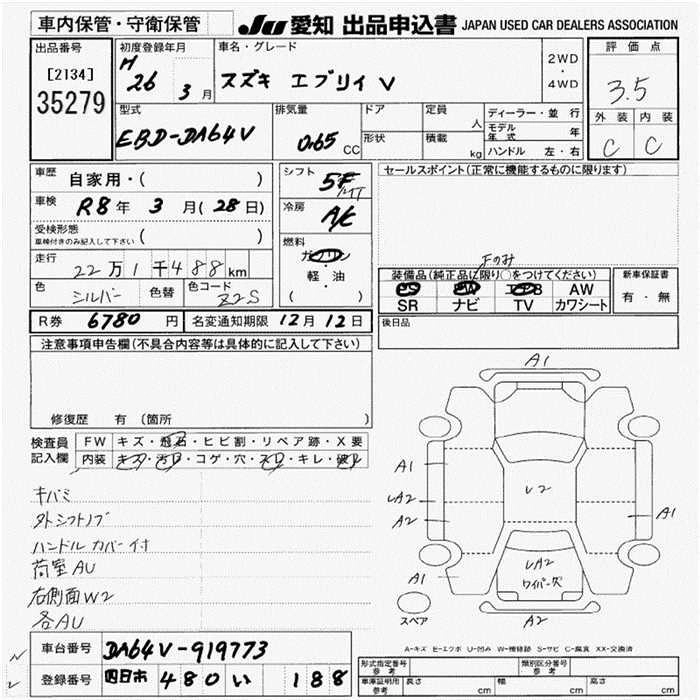 車内保管・守衛保管
JU 愛知 出品申込書 JAPAN USED CAR DEALERS ASSOCIATION
出品番号 [2134] 35279
初度登録年月 H 26 3月
車名・グレード スズキ エブリイ V
2WD・4WD
評価点 3.5
外装 内装
C C
型式 EBD-DA64V
排気量 0.65 CC
ドア 形状
定員 人
積載 kg
ディーラー・並行
モデル年式 年
ハンドル 左・右
車歴 自家用・( )
車検 R8年 3月(28日)
受検形態 車検付きのみ記入して下さい ( )
走行 22万1千488km
色 シルバー 色替 色コード Z2S
シフト 5F MT
冷房 A/C
燃料 ガソリン・軽・油 ( )
セールスポイント(正常に機能するものに限ります)
Fのみ
装備品(純正品に限り○をつけてください)
PS PW エアB AW
SR ナビ TV カワシート
新車保証書 有・無
R券 6780円 名変通知期限 12月12日
後日品
注意事項申告欄(不具合内容等は具体的に記入して下さい)
修復歴 有(箇所 )
検査員記入欄
FW キズ・飛石・ヒビ割・リペア跡・X要
内装 キズ・汚れ・コゲ・穴・スレ・キレ・破れ
キバミ
外シフトノブ
ハンドルカバー付
荷室AU
右側面W2
各AU
A1
A1
A2
A2
A1
A1
V2
A2
ワイパー欠
A2
スペア
A-キズ E-エクボ U-凹み W-補修跡 S-サビ C-腐食 XX-交換済
車台番号 DA64V-919773
登録番号 四日市 480 い 188
形式指定番号 参考
類別区分番号 参考
車庫証明用 参考 長さ cm 幅 cm 高さ cm